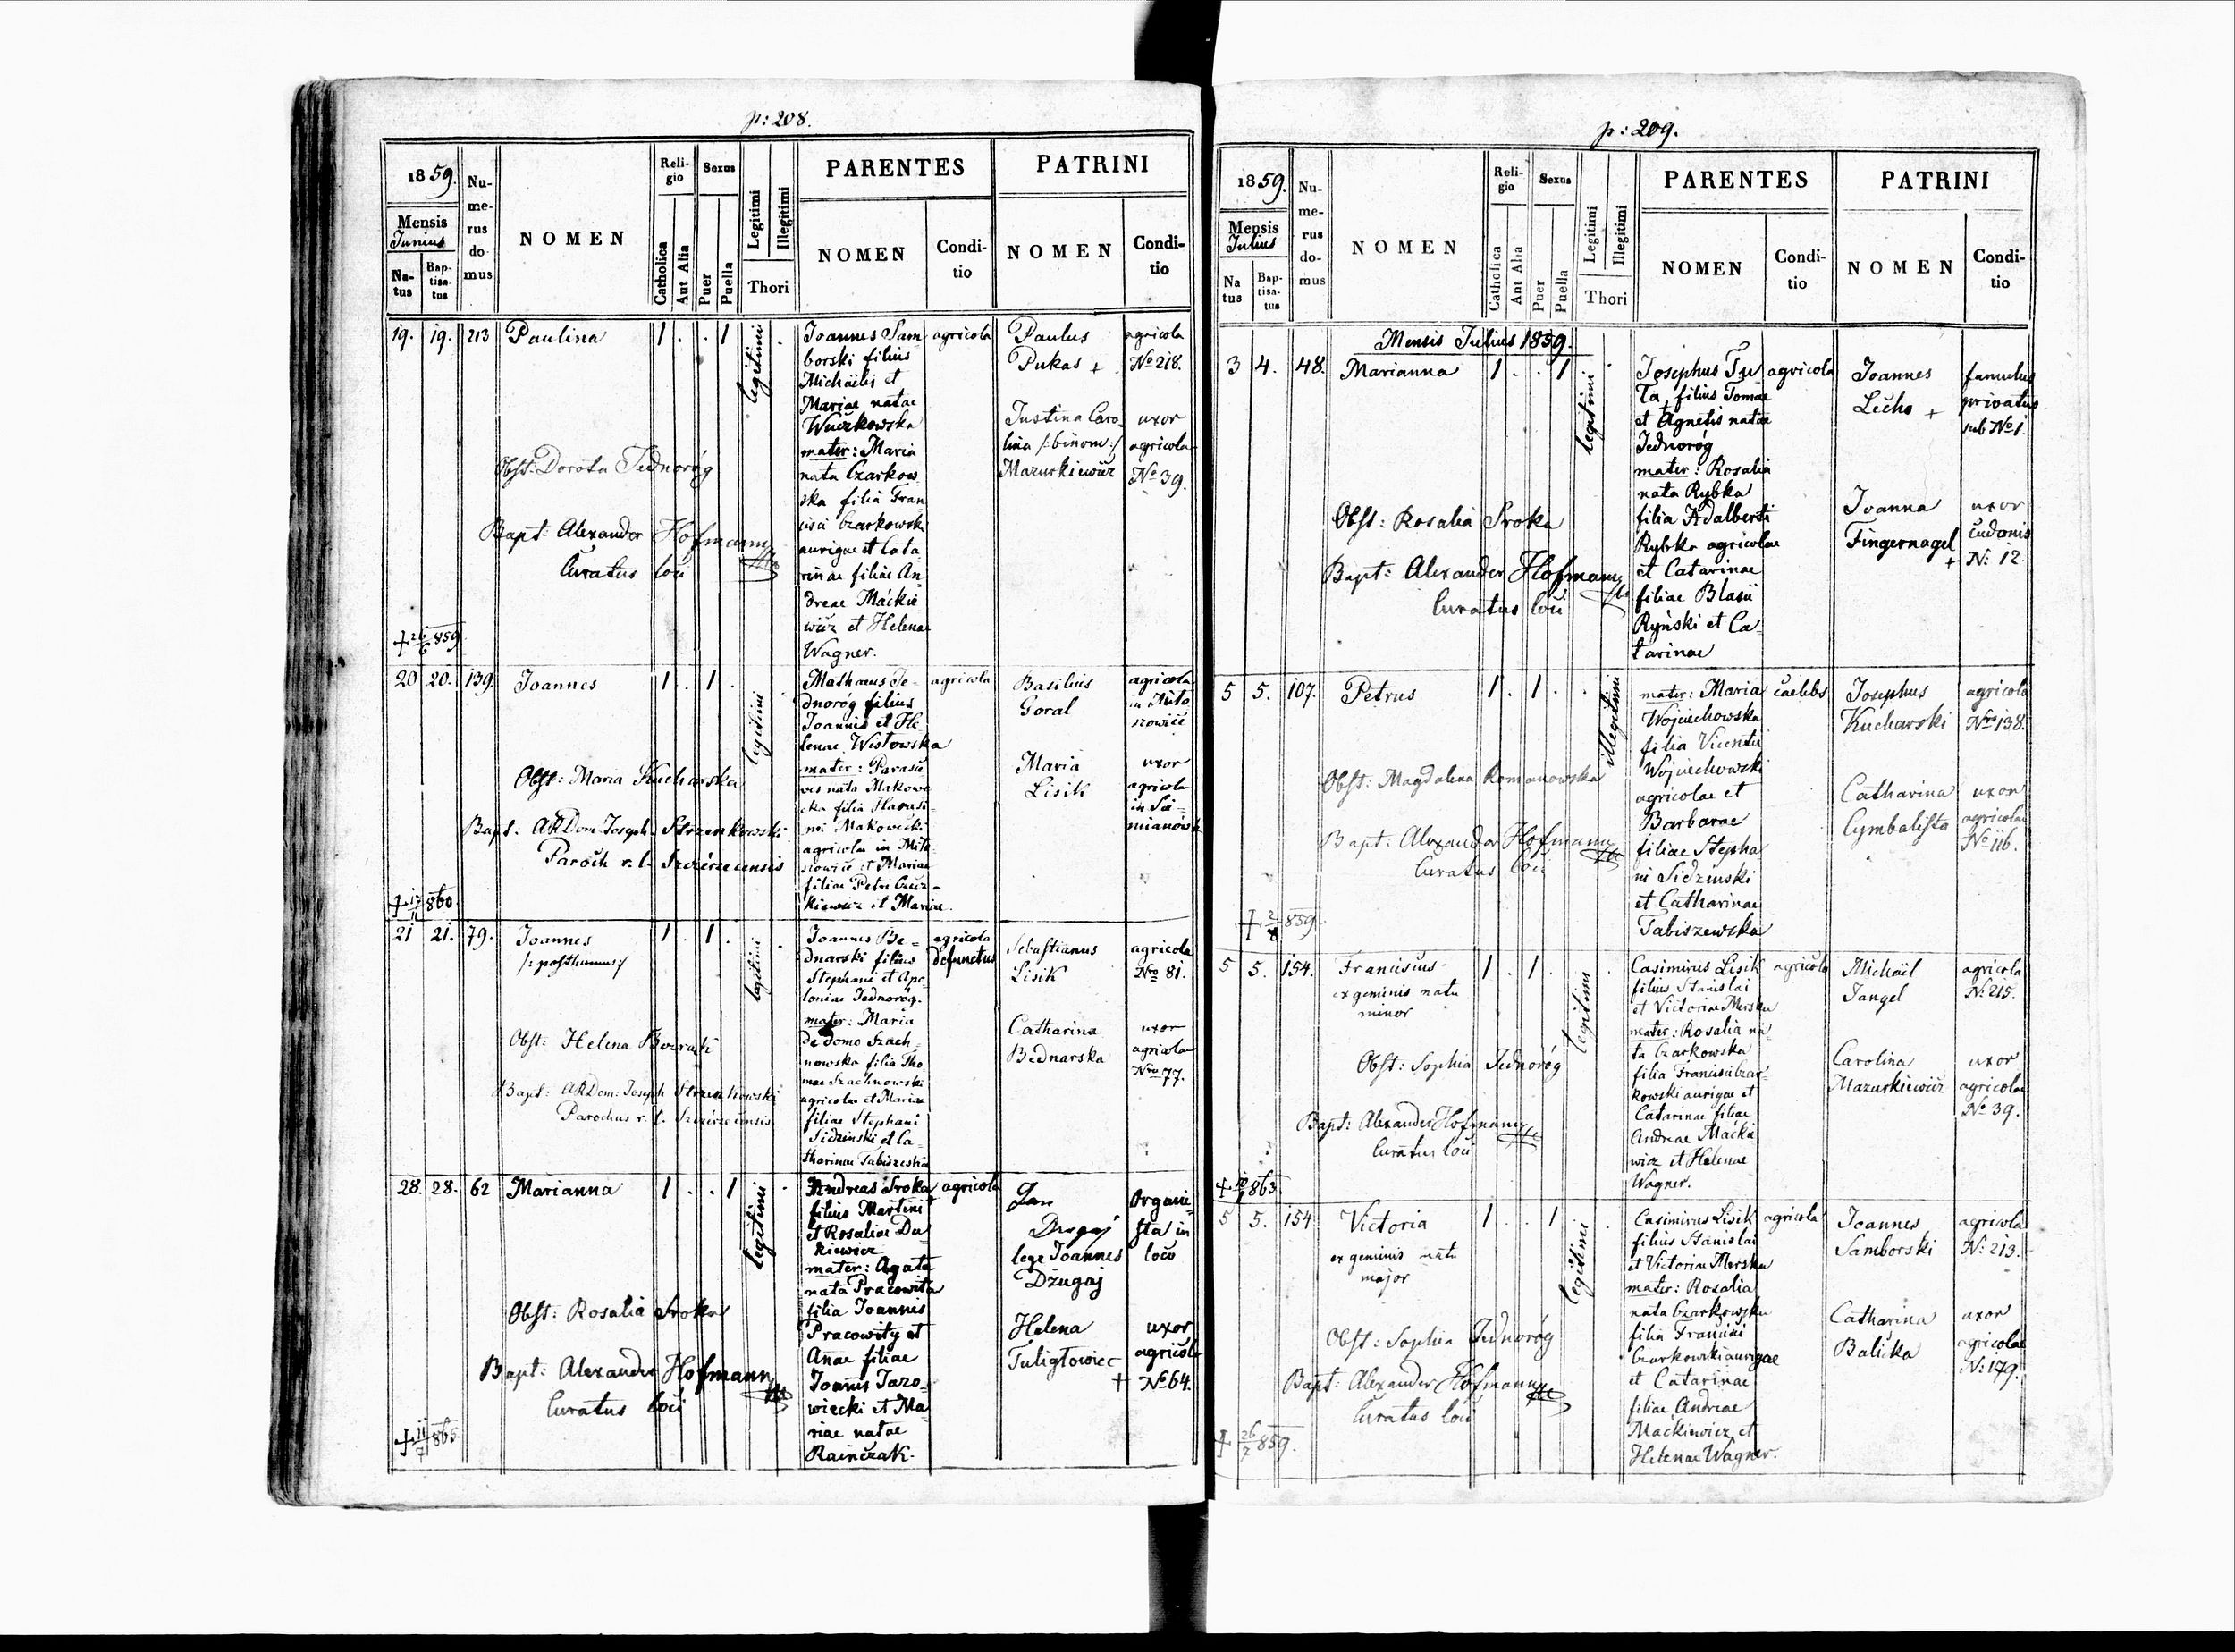 p: 208.
1859.
Mensis
Junius
Na-
tus
Bap-
tisa-
tus
Nu-
me-
rus
do-
mus
NOMEN
Reli-
gio
Catholica
Aut Alia
Sexus
Puer
Puella
Legitimi
Illegitimi
Thori
PARENTES
NOMEN
Condi-
tio
PATRINI
NOMEN
Condi-
tio
19. 19. 213 Paulina 1 . . 1 legitimi
Obst: Dorota Jednoróg
Bapt: Alexander Hofmann
Curatus loci
+ 26/6 859
Joannes Sam-
borski filius
Michaelis et
Mariae natae
Wuczkowska
mater: Maria
nata Czarkow-
ska filia Fran
cisci Czarkowski
aurigae et Cata-
rinae filiae An-
dreae Mackie
wicz et Helenae
Wagner.
agricola
Paulus
Pukas +
agricola
No 218.
Justina Caro-
lina /:binom:/
Mazurkiewicz
uxor
agricolae
No 39.
20 20. 139. Joannes 1 . 1 . legitimi
Obst: Maria Kucharska
Bapt: ARDom Joseph Strzenkowski
Paroch r. l. Szczerzecensis
860
Mathaeus Je-
dnoróg filius
Joannis et He-
lenae Wistowska
mater: Parasce
ves nata Makowe
cka filia Harasi-
mi Makowecki
agricolae in
et Mariae
filiae Petri
kiewicz et Mariae.
agricola
Basilius
Goral
agricola
in
Maria
Lisik
uxor
agricolae
in
21 21. 79. Joannes 1 . 1 . legitimi
/: posthumus :/
Obst: Helena
Bapt: ARDom: Joseph Strzenkowski
Parochus r. l. Szczerzecensis
Joannes Be-
dnarski filius
Stephani et Apo-
loniae Jednoróg.
mater: Maria
de domo Szach-
nowska filia Tho-
mae Szachnowski
agricolae et Mariae
filiae Stephani
Sidzinski et Ca-
tharinae Tabiszeska
agricola
defunctus
Sebastianus
Lisik
agricola
Nro 81.
Catharina
Bednarska
uxor
agricolae
Nro 77.
28. 28. 62 Marianna 1 . . 1 legitimi
Obst: Rosalia Sroka
Bapt: Alexander Hofmann
Curatus loci
+ 11/7 865
Andreas Sroka
filius Martini
et Rosaliae Du-
kiewicz.
mater: Agata
nata Pracowita
filia Joannis
Pracowity et
Anae filiae
Joannis Jaro-
wiecki et Ma
riae natae
Rainczak.
agricola
Jan
Drugaj
lege Joannes
Dzugaj
Organi-
sta in
loco
Helena
Tuligłowiec
+
uxor
agricolae
No 64.
p: 209.
1859.
Mensis
Julius
Na
tus
Bap-
tisa-
tus
Nu-
me-
rus
do-
mus
NOMEN
Reli-
gio
Catholica
Ant Alia
Sexus
Puer
Puella
Legitimi
Illegitimi
Thori
PARENTES
NOMEN
Condi-
tio
PATRINI
NOMEN
Condi-
tio
Mensis Julius 1859.
3 4. 48. Marianna 1 . . 1 legitimi
Obst: Rosalia Sroka
Bapt: Alexander Hofmann
Curatus loci
Josephus Tu
Ta, filius Tomae
et Agnetis natae
Jednoróg
mater: Rosalia
nata Rybka
filia Adalberti
Rybka agricolae
et Catarinae
filiae Blasii
Ryński et Ca-
tarinae
agricola
Joannes
Lecho +
famulus
privatus
sub No 1.
Joanna
Fingernagel
+
uxor
cudonis
No: 12.
5 5. 107. Petrus 1 . 1 . illegitimi
Obst: Magdalena Romanowska
Bapt: Alexander Hofmann
Curatus loci
+ 2/8 859.
mater: Maria
Wojciechowska
filia Vicentii
Wojciechowski
agricolae et
Barbarae
filiae Stepha
ni Sidzinski
et Catharinae
Tabiszewska
caelebs
Josephus
Kucharski
agricola
Nro 138.
Catharina
Cymbalista
uxor
agricolae
No 116.
5 5. 154. Franciscus 1 . 1 . legitimi
ex geminis natu
minor
Obst: Sophia Jednoróg
Bapt: Alexander Hofmann
Curatus loci
863.
Casimirus Lisik
filius Stanislai
et Victoriae Merska
mater: Rosalia na-
ta Czarkowska
filia Francisci Czar-
kowski aurigae et
Catarinae filiae
Andreae Macki
wicz et Helenae
Wagner.
agricola
Michael
Jangel
agricola
No: 215.
Carolina
Mazurkiewicz
uxor
agricolae
No 39.
5 5. 154 Victoria 1 . . 1 legitimi
ex geminis natu
major
Obst: Sophia Jednoróg
Bapt: Alexander Hofmann
Curatus loci
+ 26/7 859.
Casimirus Lisik
filius Stanislai
et Victoriae Merska
mater: Rosalia
nata Czarkowska
filia Francisci
Czarkowski aurigae
et Catarinae
filiae Andreae
Mackiewicz et
Helenae Wagner.
agricola
Joannes
Samborski
agricola
No: 213.
Catharina
Balicka
uxor
agricolae
No: 179.